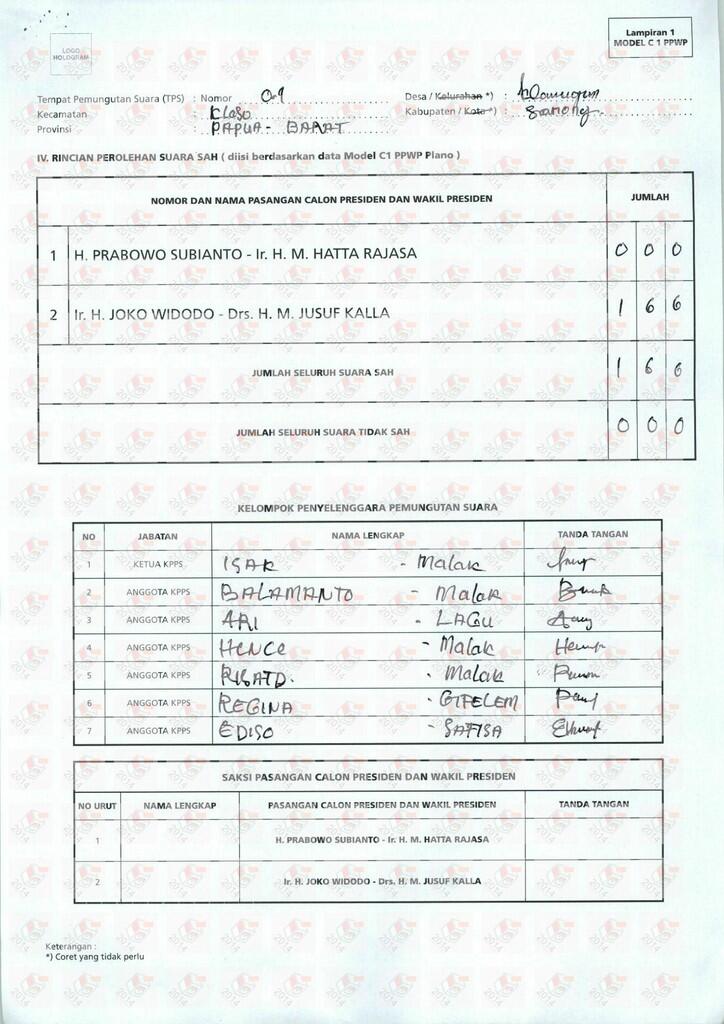 Lampiran 1
MODEL C 1 PPWP
LOGO
HOLOGRAM
Tempat Pemungutan Suara (TPS) : Nomor 01 Desa / Kelurahan *) :
Kecamatan : KLASO Kabupaten / Kota *) : Sorong
Provinsi : PAPUA - BARAT
IV. RINCIAN PEROLEHAN SUARA SAH ( diisi berdasarkan data Model C1 PPWP Plano )
NOMOR DAN NAMA PASANGAN CALON PRESIDEN DAN WAKIL PRESIDEN JUMLAH
1 H. PRABOWO SUBIANTO - Ir. H. M. HATTA RAJASA 0 0 0
2 Ir. H. JOKO WIDODO - Drs. H. M. JUSUF KALLA 1 6 6
JUMLAH SELURUH SUARA SAH 1 6 6
JUMLAH SELURUH SUARA TIDAK SAH 0 0 0
KELOMPOK PENYELENGGARA PEMUNGUTAN SUARA
NO JABATAN NAMA LENGKAP TANDA TANGAN
1 KETUA KPPS ISAK - Malak
2 ANGGOTA KPPS BALAMANTO - Malak
3 ANGGOTA KPPS ARI - LAGU
4 ANGGOTA KPPS HENCE - Malak
5 ANGGOTA KPPS - Malak
6 ANGGOTA KPPS REGINA
7 ANGGOTA KPPS EDISO - SAFISA
SAKSI PASANGAN CALON PRESIDEN DAN WAKIL PRESIDEN
NO URUT NAMA LENGKAP PASANGAN CALON PRESIDEN DAN WAKIL PRESIDEN TANDA TANGAN
1 H. PRABOWO SUBIANTO - Ir. H. M. HATTA RAJASA
2 Ir. H. JOKO WIDODO - Drs. H. M. JUSUF KALLA
Keterangan :
*) Coret yang tidak perlu